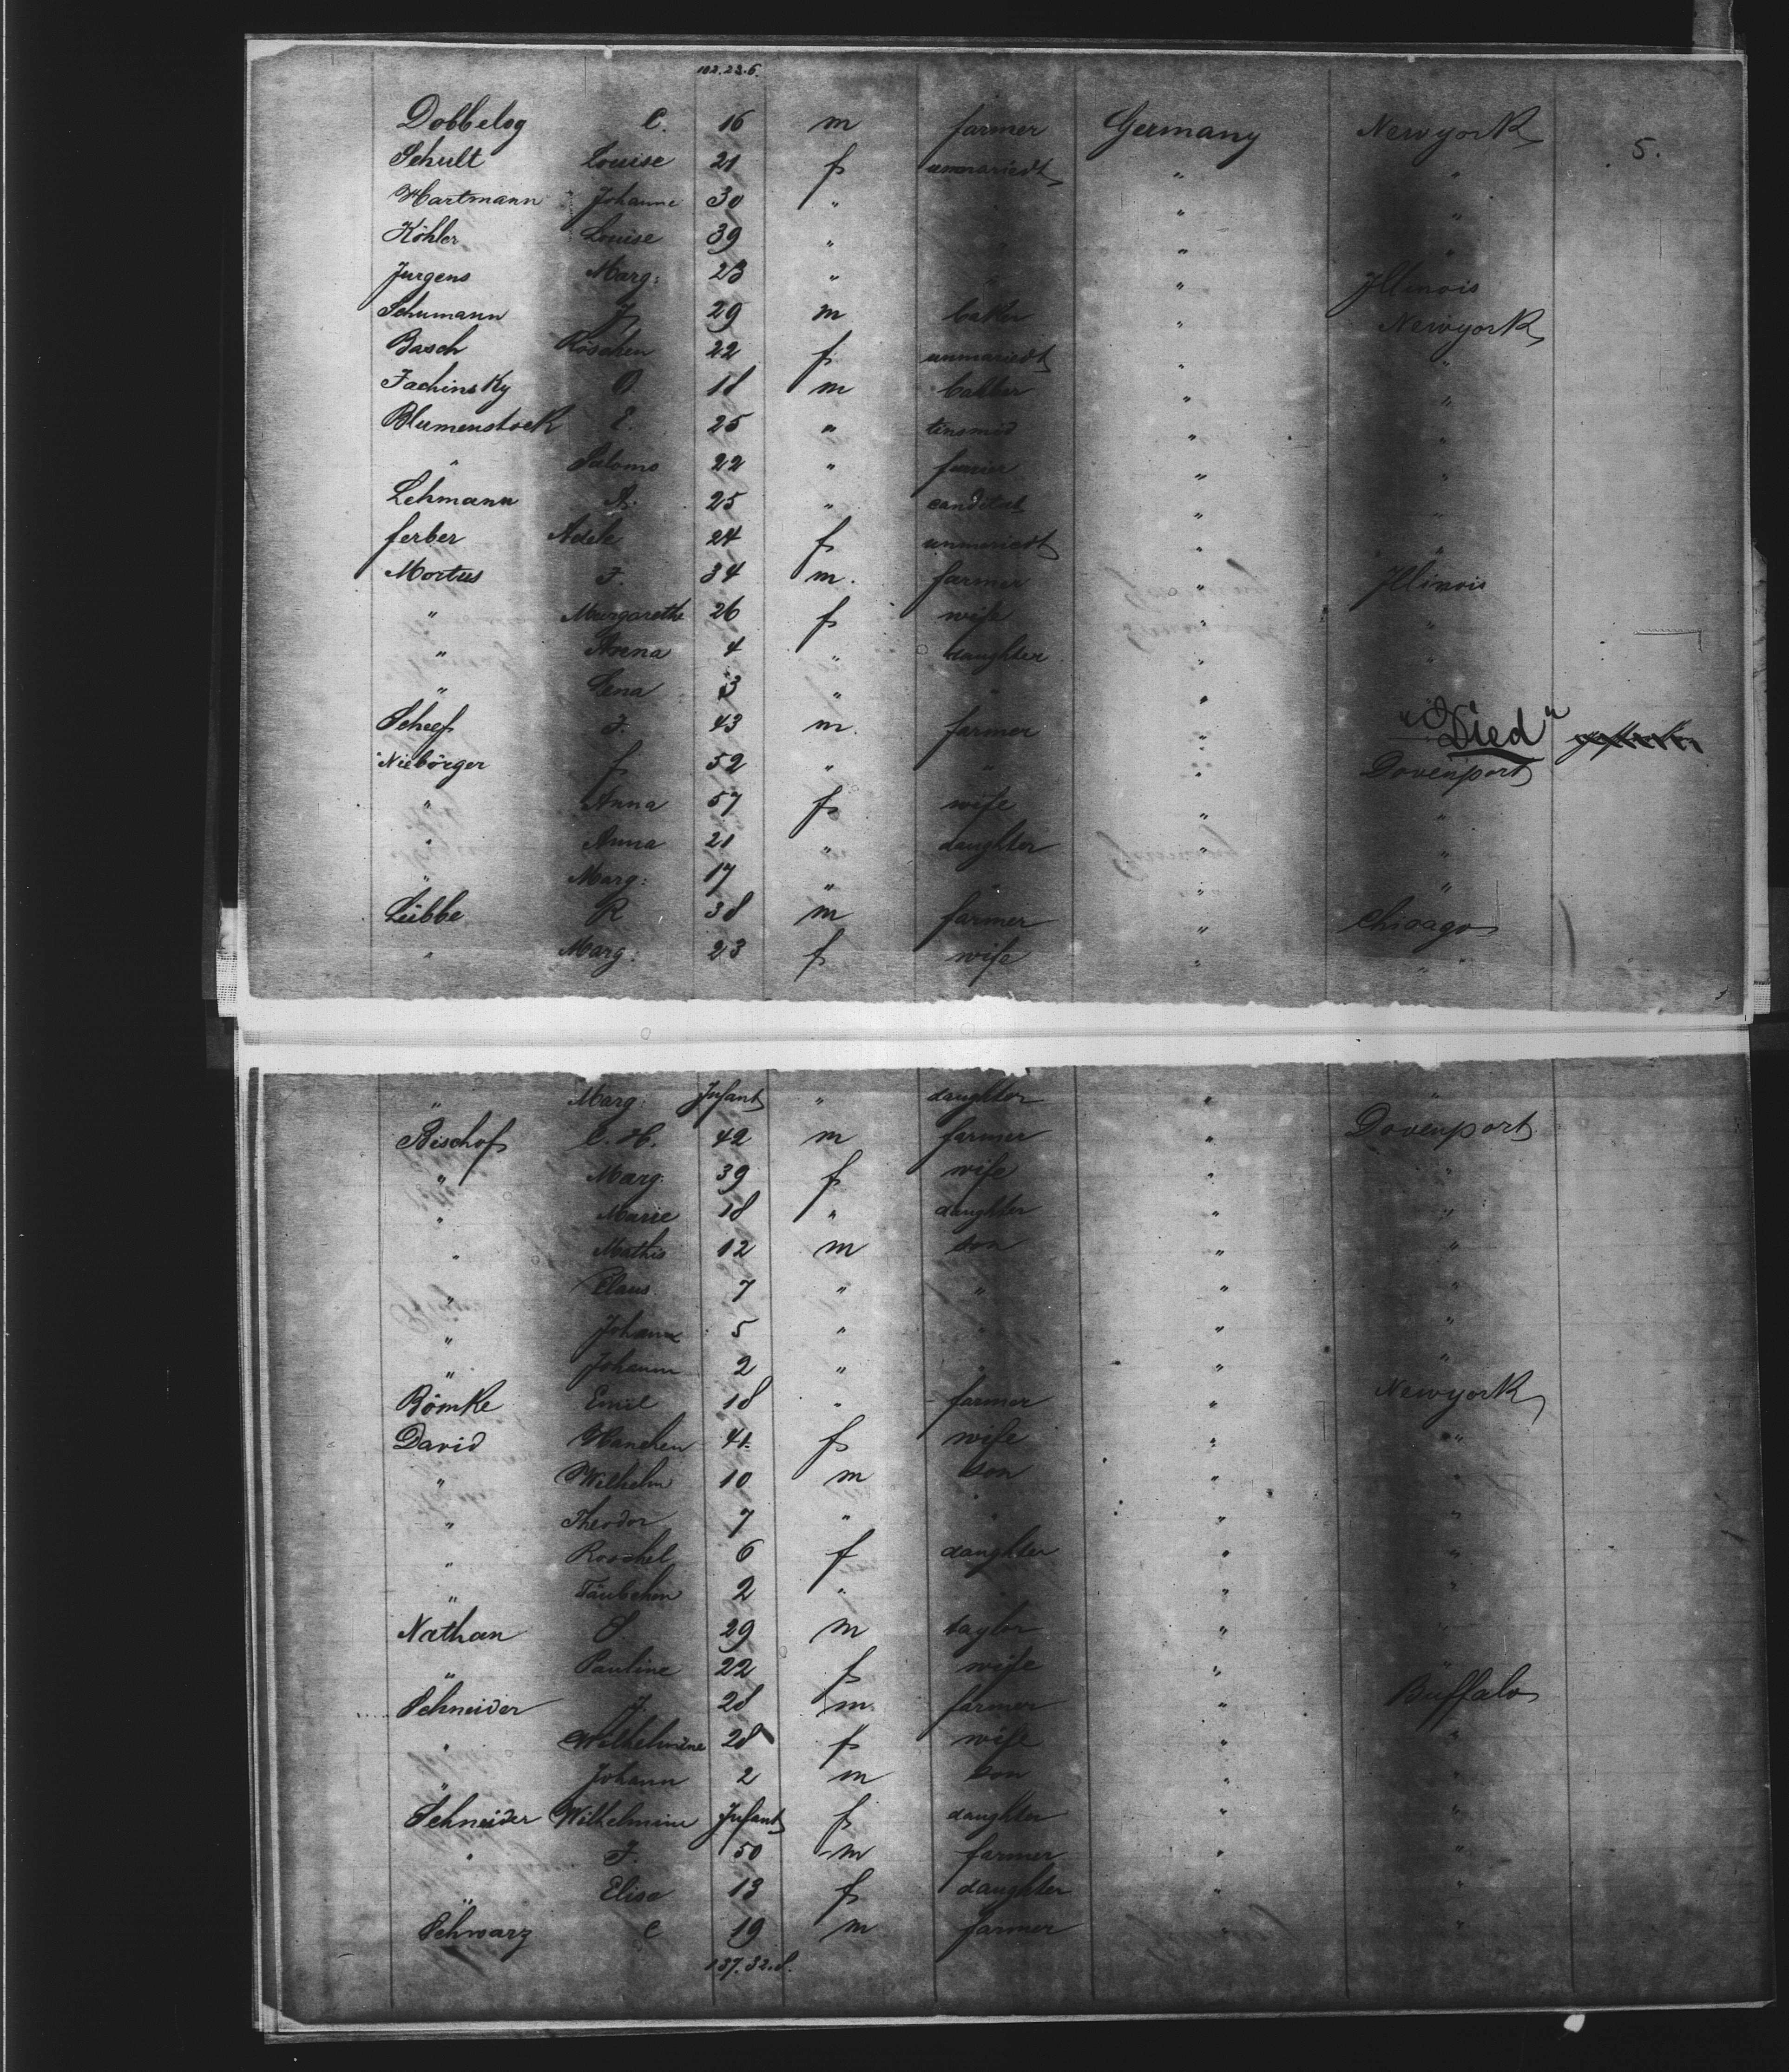 102.23.6.
Dobbelog C. 16 m farmer Germany Newyork 5.
Schult Louise 21 f unmariedt " "
Hartmann Johanne 30 " " "
Köhler Louise 39 " " " "
Jurgens Marg: 23 " " " Illinois
Schumann J. 29 m baker " Newyork
Basch Röschen 22 f unmariedt " "
Jachinsky O 18 m " "
Blumenstock E. 25 " tinsmid " "
" Salomo 22 " " "
Lehmann A. 25 " " "
ferber Adele 24 f unmariedt " "
Mortus F. 34 m. farmer " Illinois
" Margarethe 26 f wife " "
" Anna 4 " daughter " "
" Lena 3 " " "
Scheef F. 43 m. farmer " "Died"
Niebörger f 52 " " " Dovenport
" Anna 57 f wife " "
" Anna 21 " daughter " "
" Marg: 17 " " " "
Lübbe R 38 m farmer " Chicago
" Marg: 23 f wife " "
" Marg: Infant " daughter " "
Bischof C. H. 42 m farmer " Dovenport
" Marg. 39 f wife " "
" Marie 18 " daughter " "
" Mathis 12 m son " "
" Claus 7 " " " "
" Johann 5 " " " "
" Johann 2 " " " "
Bömke Emil 18 " farmer " Newyork
David Hanchen 41. f wife " "
" Wilhelm 10 m son " "
" Theodor 7 " " " "
" Roschel 6 f daughter " "
" Täubchen 2 " " " "
Nathan S. 29 m taylor " "
" Pauline 22 f wife " "
Schneider J. 28 m. farmer " Buffalo
" Wilhelmine 28 f wife " "
" Johann 2 m son " "
Schneider Wilhelmine Infant f daughter " "
" F. 50 m farmer " "
" Elise 13 f daughter " "
Schwarz C 19 m farmer " "
137.32.8.